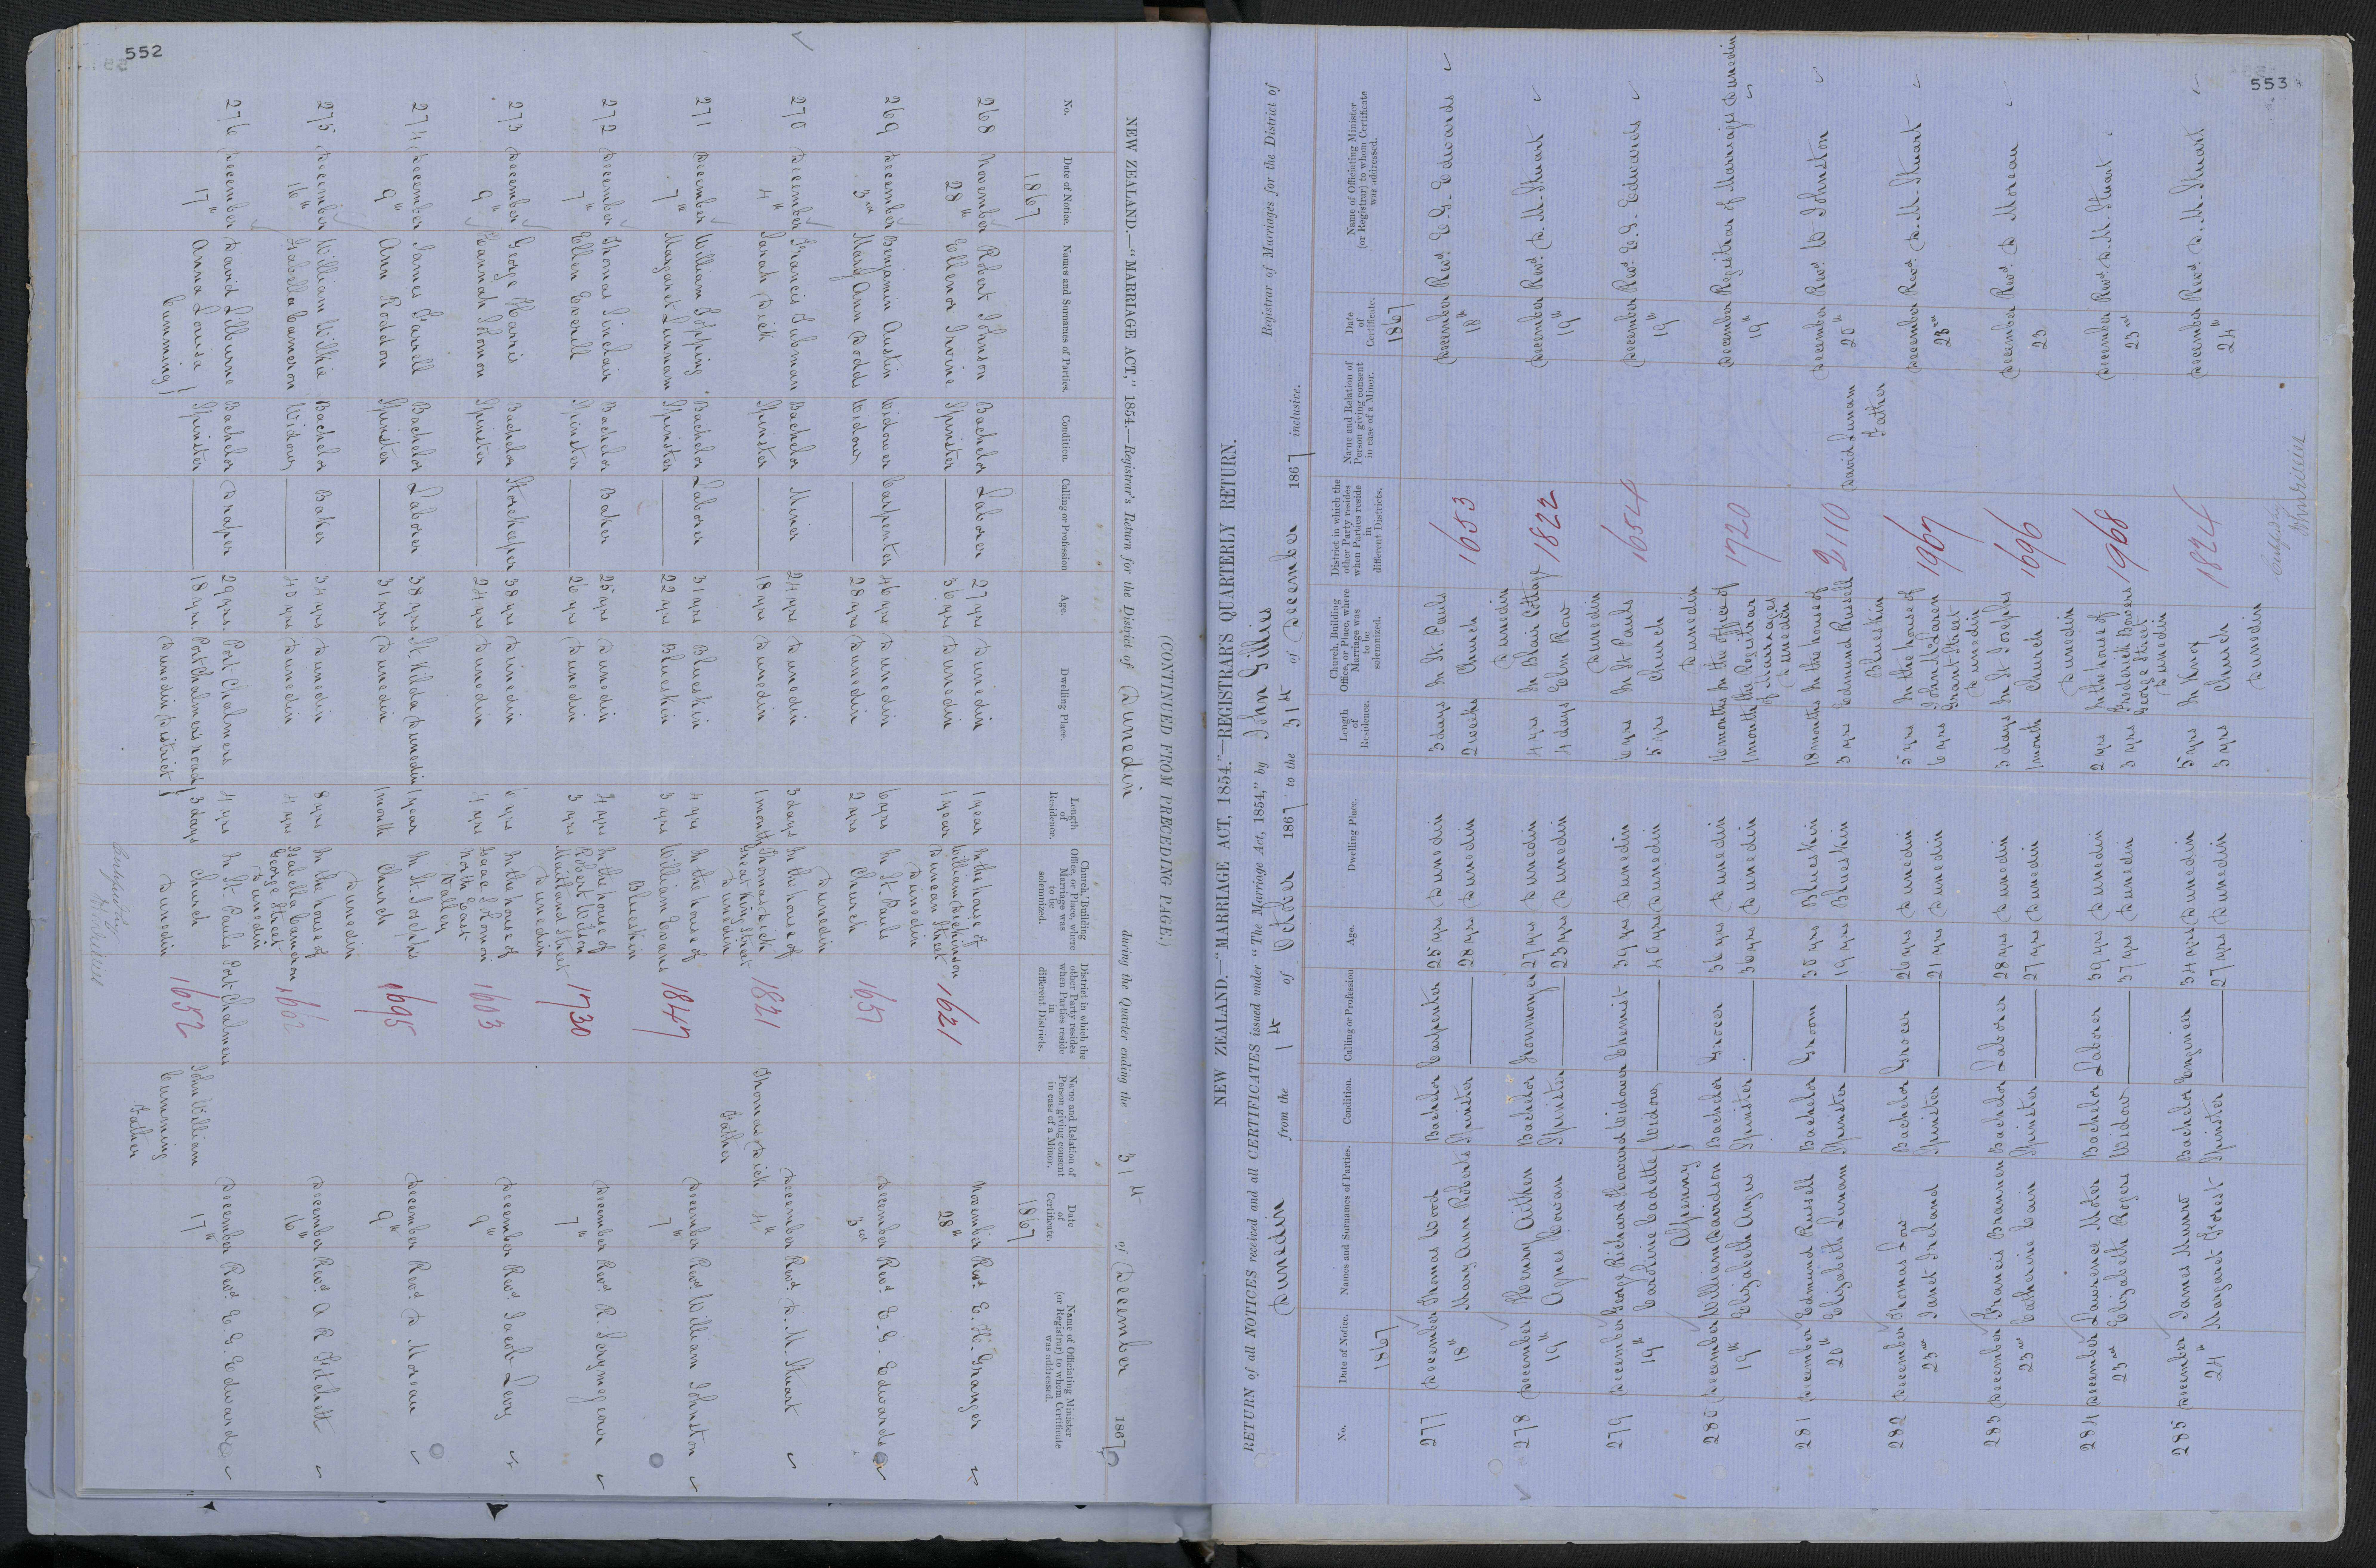 552
(CONTINUED FROM PRECEDING PAGE.)
NEW ZEALAND.—"MARRIAGE ACT," 1854.—Registrar's Return for the District of Dunedin during the Quarter ending the 31st of December 1867
No. Date of Notice. Names and Surnames of Parties. Condition. Calling or Profession Age. Dwelling Place. Length of Residence. Church, Building Office, or Place, where Marriage was to be solemnized. District in which the other Party resides when Parties reside in different Districts. Name and Relation of Person giving consent in case of a Minor. Date of Certificate. Name of Officiating Minister (or Registrar) to whom Certificate was addressed.
1867 1867
268 November Robert Johnson Bachelor Laborer 27 yrs Dunedin 1 year In the house of November Revd. E. H. Granger
28th Ellenor Irvine Spinster 36 yrs Dunedin 1 year William Dickinson 1621 28th
Duncan Street
Dunedin
269 December Benjamin Austin Widower Carpenter 46 yrs Dunedin 6 yrs In St. Pauls December Revd. E. G. Edwards
3rd Mary Ann Dodds Widow 28 yrs Dunedin 2 yrs Church 1651 3rd
Dunedin
270 December Francis Tubman Bachelor Miner 24 yrs Dunedin 3 days In the house of December Revd. D. M. Stuart
4th Sarah Dick Spinster 18 yrs Dunedin 1 month Thomas Dick 1821 Thomas Dick 4th
Great King Street Father
Dunedin
271 December William Topping Bachelor Laborer 31 yrs Blueskin 4 yrs In the house of December Revd. William Johnston
7th Margaret Lunnam Spinster 22 yrs Blueskin 3 yrs William Evans 1847 7th
Blueskin
272 December Thomas Sinclair Bachelor Baker 25 yrs Dunedin 4 yrs In the house of December Revd. R. Scrymgeour
7th Ellen Everill Spinster 26 yrs Dunedin 3 yrs Robert Wilson 1730 7th
Maitland Street
Dunedin
273 December George Harris Bachelor Storekeeper 38 yrs Dunedin 6 yrs In the house of December Revd. Jacob Levy
9th Hannah Solomon Spinster 24 yrs Dunedin 4 yrs Isaac Solomon 1603 9th
North East
Valley
274 December James Farrell Bachelor Laborer 38 yrs St. Kilda Dunedin 1 year In St. Josephs December Revd. D. Moreau
9th Ann Roddon Spinster 31 yrs Dunedin 1 month Church 1695 9th
Dunedin
275 December William Wilkie Bachelor Baker 34 yrs Dunedin 8 yrs In the house of December Revd. A. R. Fitchett
16th Isabella Cameron Widow 40 yrs Dunedin 4 yrs Isabella Cameron 1602 16th
George Street
Dunedin
276 December David Lilburne Bachelor Draper 29 yrs Port Chalmers 4 yrs In St. Pauls Port Chalmers December Revd. E. G. Edwards
17th Anna Louisa Spinster 18 yrs Port Chalmers road 3 days Church 1652 John William 17th
Cumming Dunedin District Dunedin Cumming
Father
553
NEW ZEALAND.—"MARRIAGE ACT, 1854."—REGISTRAR'S QUARTERLY RETURN.
RETURN of all NOTICES received and all CERTIFICATES issued under "The Marriage Act, 1854," by John Gillies Registrar of Marriages for the District of
Dunedin from the 1st of October 1867 to the 31st of December 1867 inclusive.
No. Date of Notice. Names and Surnames of Parties. Condition. Calling or Profession Age. Dwelling Place. Length of Residence. Church, Building Office, or Place, where Marriage was to be solemnized. District in which the other Party resides when Parties reside in different Districts. Name and Relation of Person giving consent in case of a Minor. Date of Certificate. Name of Officiating Minister (or Registrar) to whom Certificate was addressed.
1867 1867
277 December Thomas Wood Bachelor Carpenter 25 yrs Dunedin 3 days In St. Pauls December Revd. E. G. Edwards
18th Mary Ann Roberts Spinster 28 yrs Dunedin 2 weeks Church 1653 18th
Dunedin
278 December Henry Aitken Bachelor Ironmonger 27 yrs Dunedin 4 yrs In Blair Cottage December Revd. D. M. Stuart
19th Agnes Cowan Spinster 23 yrs Dunedin 4 days Elm Row 1822 19th
Dunedin
279 December George Richard Howard Widower Chemist 39 yrs Dunedin 6 yrs In St Pauls December Revd. E. G. Edwards
19th Caroline Cadette Widow 40 yrs Dunedin 5 yrs Church 1654 19th
Alpenny Dunedin
280 December William Davidson Bachelor Grocer 36 yrs Dunedin 16 months In the office of December Registrar of Marriages Dunedin
19th Elizabeth Angus Spinster 36 yrs Dunedin 1 month the Registrar 1720 19th
of Marriages
Dunedin
281 December Edmund Russell Bachelor Groom 30 yrs Blueskin 18 months In the house of December Revd. W Johnston
20th Elizabeth Lunam Spinster 19 yrs Blueskin 3 yrs Edmund Russell 2110 David Lunam 20th
Blueskin Father
282 December Thomas Low Bachelor Grocer 26 yrs Dunedin 5 yrs In the house of December Revd. D. M. Stuart
23rd Janet Ireland Spinster 21 yrs Dunedin 6 yrs John McLaren 1967 23rd
Grant Street
Dunedin
283 December Francis Brannen Bachelor Laborer 28 yrs Dunedin 3 days In St. Josephs December Revd. D Moreau
23rd Catherine Cain Spinster 27 yrs Dunedin 1 month Church 1696 23
Dunedin
284 December Lawrence Moter Bachelor Laborer 39 yrs Dunedin 2 yrs In the house of December Revd. D. M. Stuart
23rd Elizabeth Rogers Widow 37 yrs Dunedin 3 yrs Frederick Bowers 1968 23rd
George Street
Dunedin
285 December James Munro Bachelor Engineer 34 yrs Dunedin 5 yrs In Knox December Revd. D. M. Stuart
24th Margaret Forest Spinster 27 yrs Dunedin 3 yrs Church 1824 24th
Dunedin